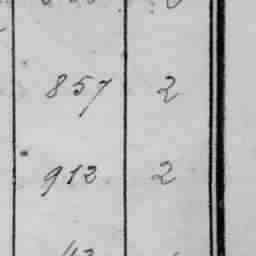 857 2
912 2